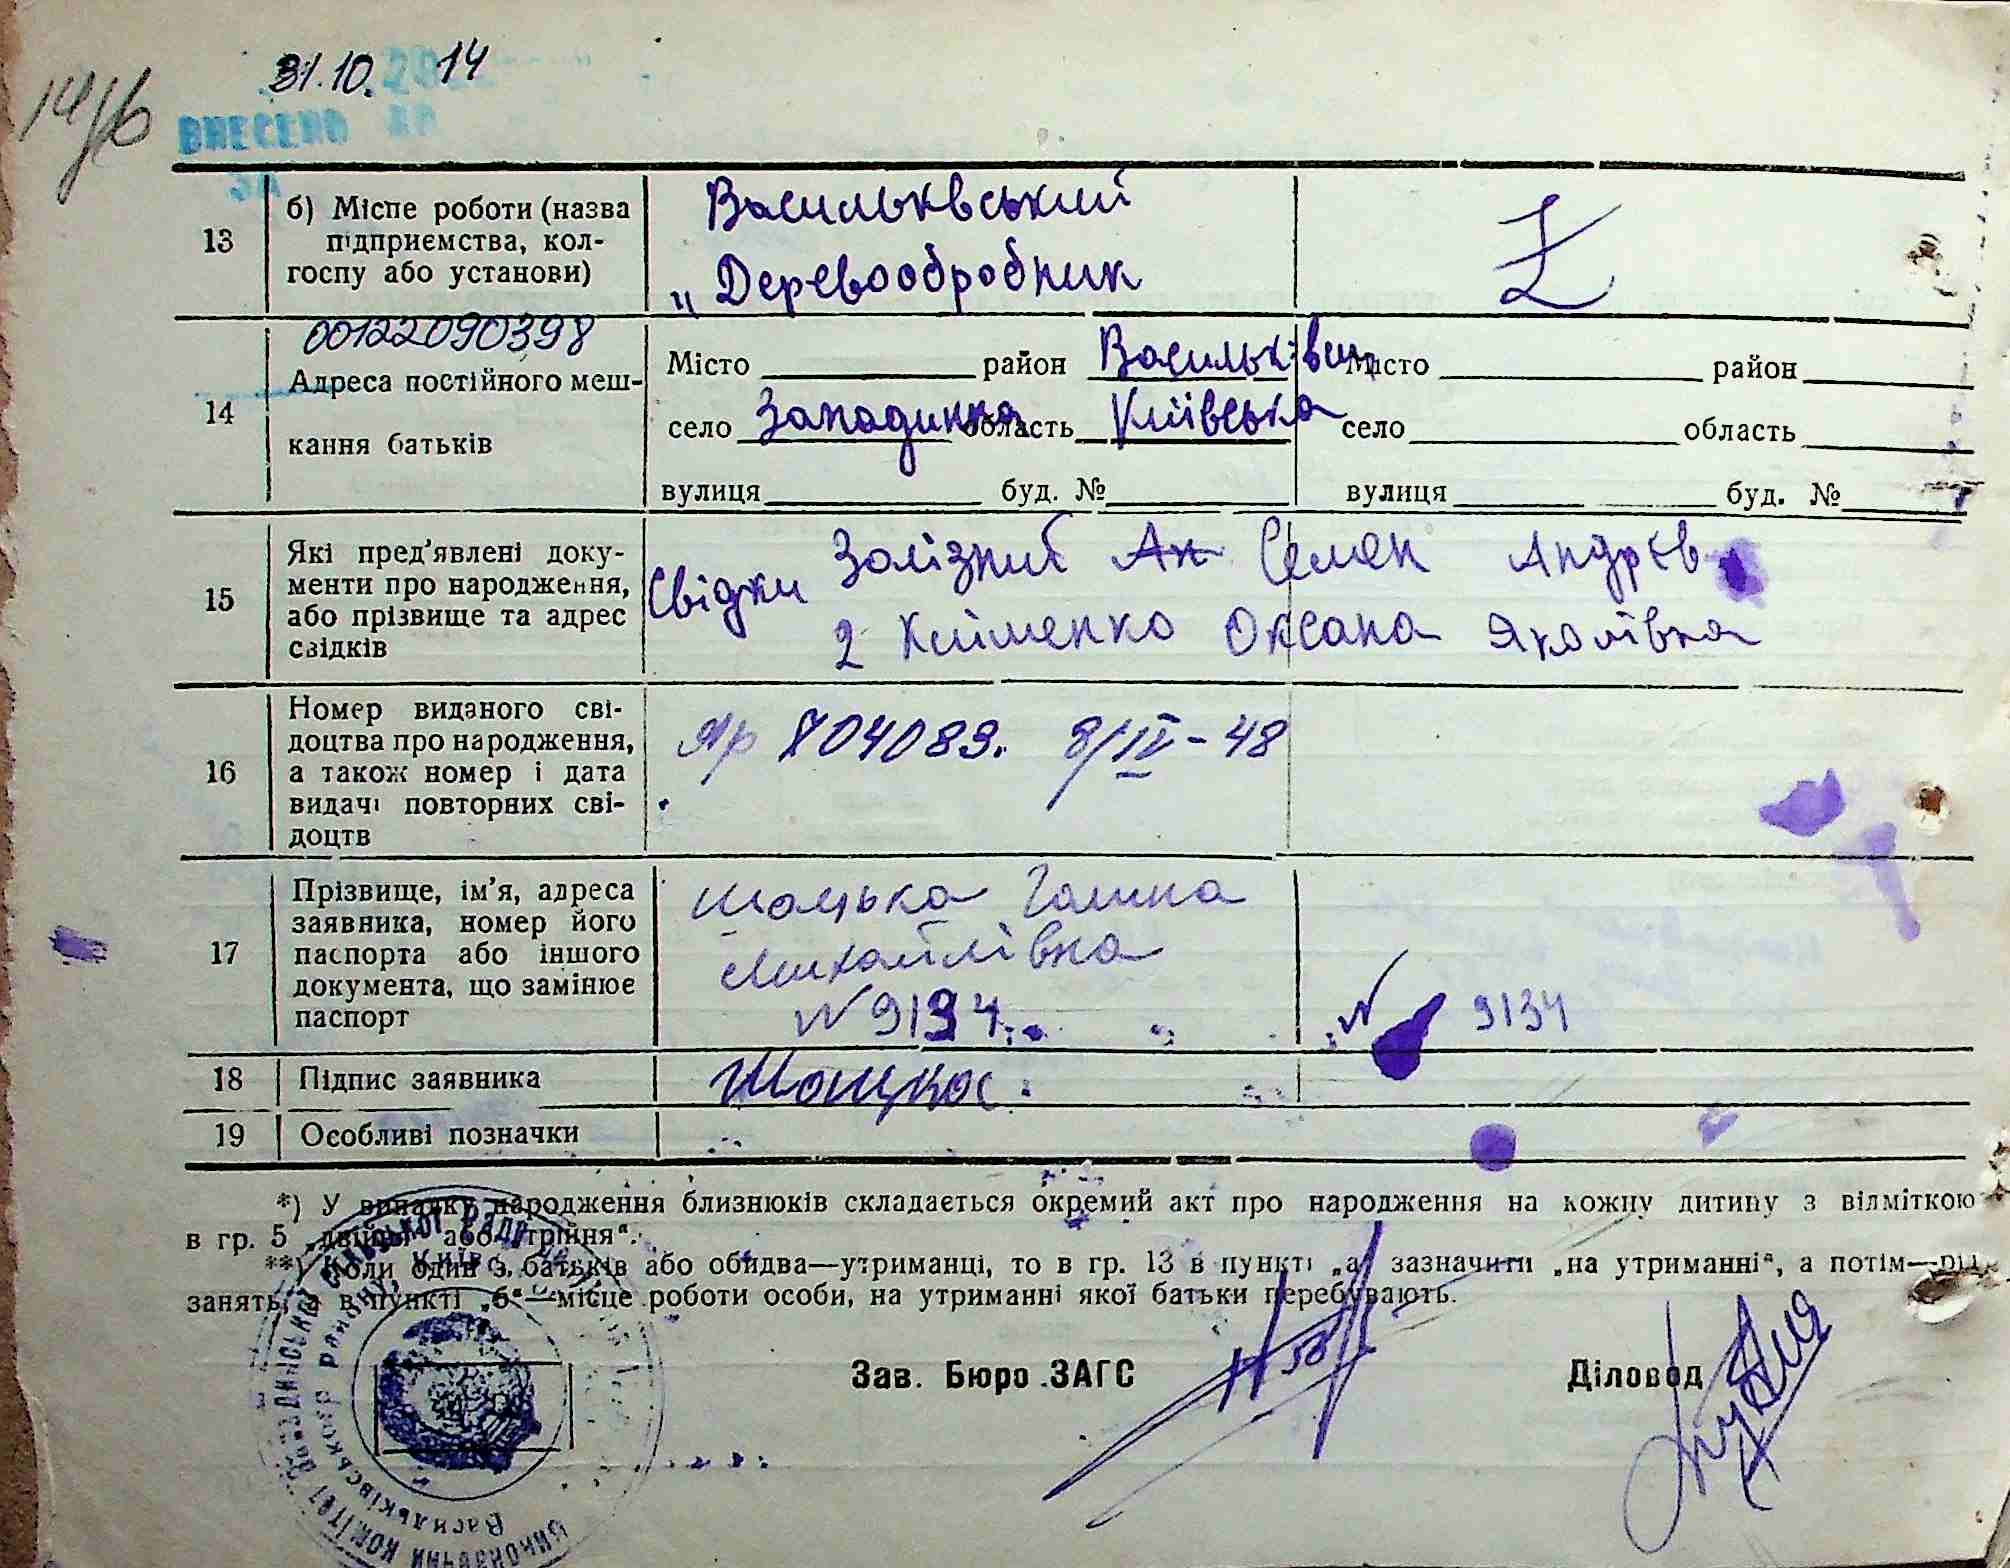 31.10. 14
14/6
ВНЕСЕНО
13
б) Місце роботи (назва
підприємства, кол-
госпу або установи)
Васильквський
„Деревообробник
00122090398
14
Адреса постійного меш-
кання батьків
Місто район Васильківськ
село Западинка область Київська
вулиця буд. №
Місто район
село область
вулиця буд. №
15
Які пред'явлені доку-
менти про народження,
або прізвище та адрес
свідків
Свідки Залізний Ан Семен Андрєв
2 Клименко Оксана Яковівна
16
Номер виданого сві-
доцтва про народження,
а також номер і дата
видачі повторних сві-
доцтв
704089. 8/IV-48
17
Прізвище, ім'я, адреса
заявника, номер його
паспорта або іншого
документа, що замінює
паспорт
Шацька Галина
Михайлівна
N 9134
N 9134
18
Підпис заявника
Шацька.
19
Особливі позначки
*) У випадку народження близнюків складається окремий акт про народження на кожну дитину з відміткою
в гр. 5 „двійня" або „трійня".
**) Коли один з батьків або обидва—утриманці, то в гр. 13 в пункті „а" зазначити „на утриманні", а потім—рід
занять, а в пункті „б"—місце роботи особи, на утриманні якої батьки перебувають.
Зав. Бюро ЗАГС
Діловод
Виконавчий комітет
сільської ради
Васильківського району, Київс